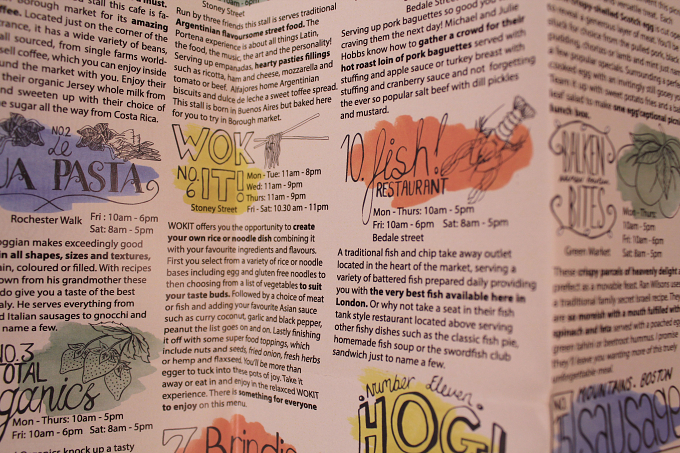 must.
stall this cafe is fa-
Borough market for its amazing
coffee. Located just on the corner of the
entrance, it has a wide variety of beans,
all sourced, from single farms world-
sell coffee, which you can enjoy inside
around the market with you. Enjoy their
their organic Jersey whole milk from
and sweeten up with their choice of
sugar all the way from Costa Rica.
NO.2
de
LA PASTA
Rochester Walk
Fri : 10am - 6pm
Sat: 8am - 5pm
makes exceedingly good
in all shapes, sizes and textures,
coloured or filled. With recipes
down from his grandmother these
do give you a taste of the best
Italy. He serves everything from
Italian sausages to gnocchi and
name a few.
NO.3
TOTAL
Organics
Mon - Thurs: 10am - 5pm
Fri: 10am - 6pm Sat: 8am - 5pm
Organics knock up a tasty
Stoney Street
Run by three friends this stall is serves traditional
Argentinian flavoursome street food. The
Portena experience is about all things Latin,
the food, the music, the art and the personality!
Serving up empanadas, hearty pasties fillings
such as ricotta, ham and cheese, mozzarella and
tomato or beef. Alfajores home Argentinian
biscuits and dulce de leche a sweet toffee spread.
This stall is born in Buenos Aires but baked here
for you to try in Borough market.
WOK
NO.
6
IT!
Stoney Street
Mon - Tue: 11am - 8pm
Wed: 11am - 9pm
Thurs: 11am - 9pm
Fri - Sat: 10.30 am - 11pm
WOKIT offers you the opportunity to create
your own rice or noodle dish combining it
with your favourite ingredients and flavours.
First you select from a variety of rice or noodle
bases including egg and gluten free noodles to
then choosing from a list of vegetables to suit
your taste buds. Followed by a choice of meat
or fish and adding your favourite Asian sauce
such as curry coconut, garlic and black pepper,
peanut the list goes on and on. Lastly finishing
it off with some super food toppings, which
include nuts and seeds, fried onion, fresh herbs
or hemp and flaxseed. You'll be more than
egger to tuck into these pots of joy. Take it
away or eat in and enjoy in the relaxced WOKIT
experience. There is something for everyone
to enjoy on this menu.
7
Brindis
Bedale Street
Serving up pork baguettes so good you
craving them the next day! Michael and Julie
Hobbs know how to gather a crowd for their
hot roast loin of pork baguettes served with
stuffing and apple sauce or turkey breast with
stuffing and cranberry sauce and not forgetting
the ever so popular salt beef with dill pickles
and mustard.
10. fish!
RESTAURANT
Mon - Thurs: 10am - 5pm
Fri: 10am - 6pm Sat: 8am - 5pm
Bedale street
A traditional fish and chip take away outlet
located in the heart of the market, serving a
variety of battered fish prepared daily providing
you with the very best fish available here in
London. Or why not take a seat in their fish
tank style restaurant located above serving
other fishy dishes such as the classic fish pie,
homemade fish soup or the swordfish club
sandwich just to name a few.
Number Eleven.
HOG!
lunch box.
BALKEN
BITES
Green Market
Mon-Thurs:
10am - 5pm
Fri: 10am - 6pm
Sat: 8am - 5pm
These crispy parcels of heavenly delight a
prefect as a movable feast. Ran Wilsons uses
a traditional family secret Israel recipe. They
are so moreish with a mouth fulfilled with
spinach and feta served with a poached egg
green tahini or beetroot hummus. I promise
they'll leave you wanting more of this truely
unforgettable meal.
MOUNTAINS. BOSTON
NO.
Sausage